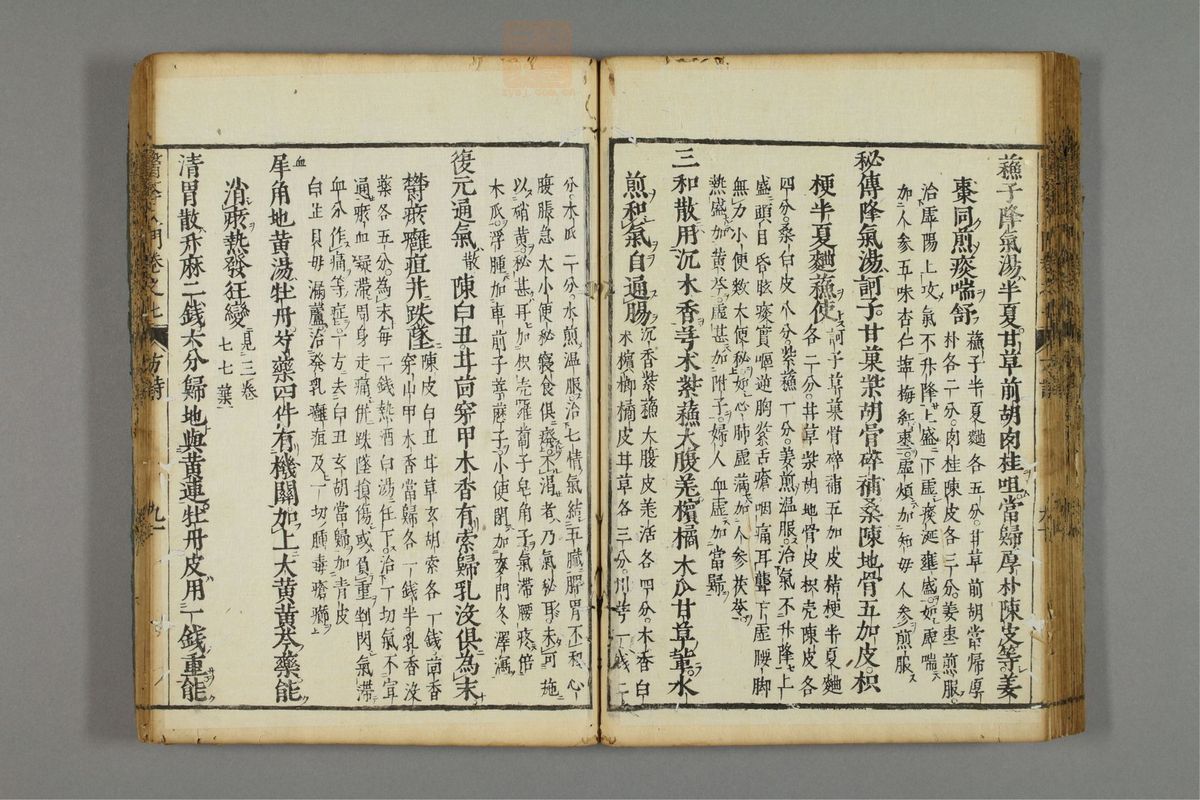 蘓子降氣湯半夏甘草前胡肉桂咀當歸厚朴陳皮等姜
棗同煎痰喘舒
蘓子半夏麯各五分甘草前胡當帰厚
朴各二分肉桂陳皮各三分姜棗煎服
治虚陽上攻氣不升降上盛下虚痰涎壅盛如虚喘
加人参五味杏仁塩梅紅棗虚煩加知母人参煎服
秘傳降氣湯訶子甘菓柴胡骨碎補桑陳地骨五加皮枳
梗半夏麯蘓使
訶子草菓骨碎補五加皮桔梗半夏麯
各二分甘草柴胡地骨皮枳壳陳皮各
四分桑白皮八分紫蘓一分姜煎温服治氣不升降上
盛頭目昏眩痰實嘔逆胸紧舌瘡咽痛耳聾下虚腰脚
無力小便数大便秘如心肺虚滿加人参茯苓
熱盛加黄芩虚甚加附子婦人血虚加當歸
三和散用沉木香芎术紫蘓大腹羌檳橘木瓜甘草軰水
煎和氣自通腸
沉香紫蘓大腹皮羌活各四分木香白
术檳榔橘皮甘草各三分川芎一銭二
分木瓜二分水煎温服治七情氣結五臓脾胃不和心
腹脹急大小便秘寢食俱癈不渇者乃氣秘耳未可施
以硝黄秘甚耳加枳壳蘿蔔子皂角子氣滞腰疼倍
木瓜浮腫加車前子葶藶子小便閉加麥門冬澤瀉
復元通氣散陳白丑甘茴穿甲木香有索歸乳没俱為末
欝疼癰疽并跌墜
陳皮白丑甘草玄胡索各一銭茴香
穿山甲木香當歸各一銭半乳香没
薬各五分為末毎二銭熱酒白湯任下治一切氣不宣
通疼血凝滞周身走痛併跌墜損傷或負重刲閃氣滞
血分作痛等症一方去白丑玄胡當歸加青皮
白芷貝母漏蘆治発乳癰疽及一切腫毒瘡癤
犀角地黄湯牡丹芍藥四件有機關加上大黄黄芩藥能
血
消疼熱發狂變
見三卷
七七葉
清胃散升麻二銭六分歸地與黄連牡丹皮用一銭重能
方詩
九一